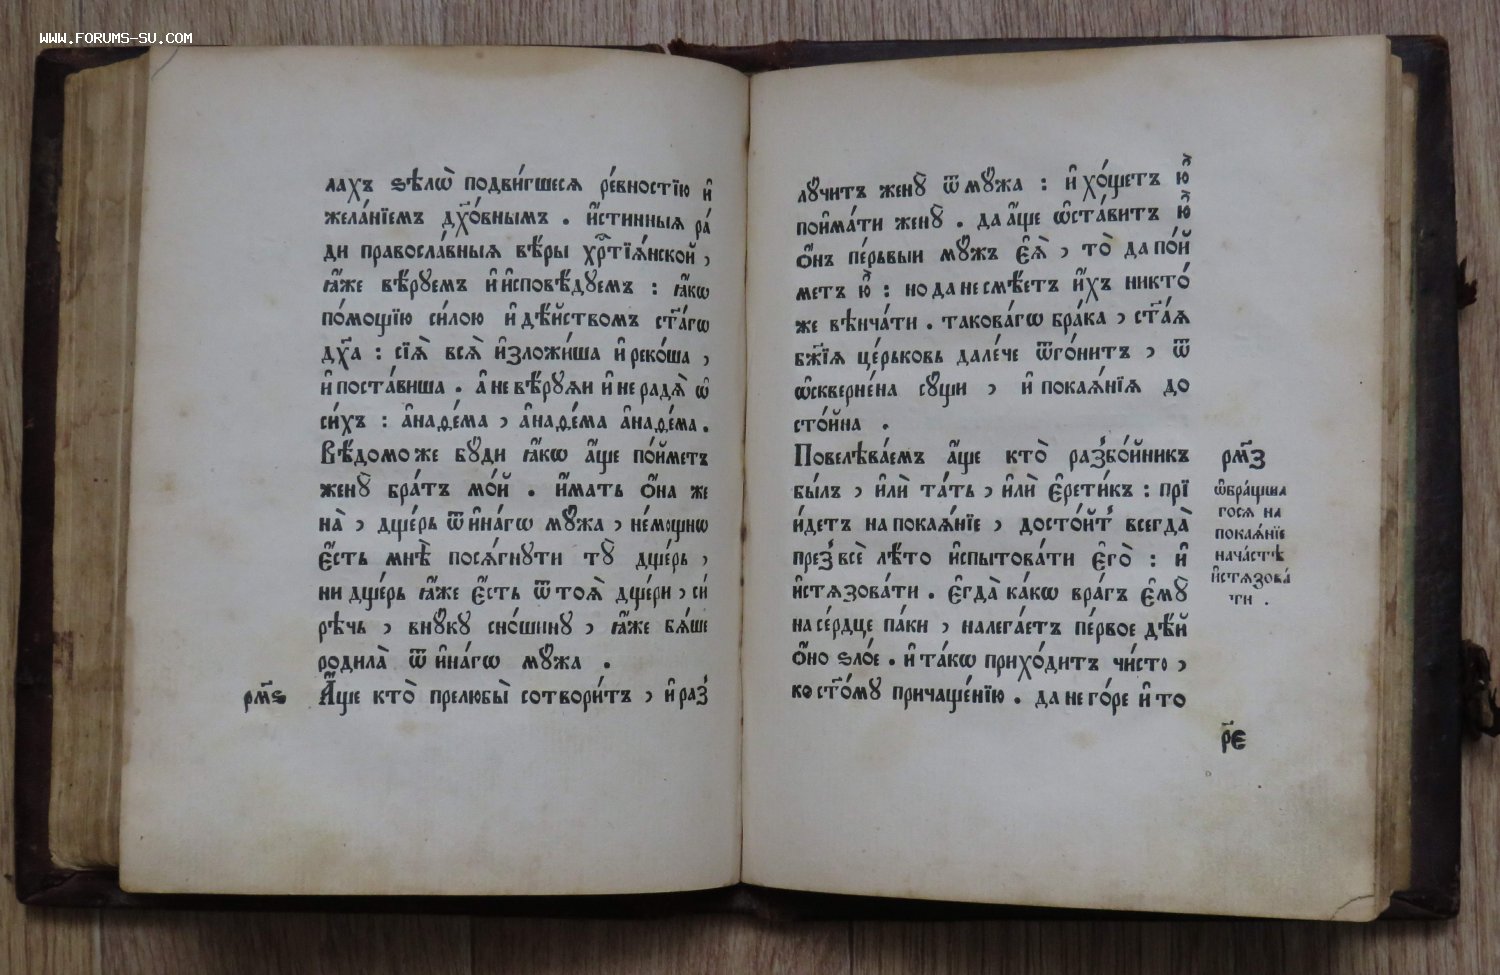 WWW.FORUMS-SU.COM
лахъ ѕѣлѡ̀ подви́гшеся ре́вностїю и҆
жела́нїемъ дх҃о́внымъ . и҆́стинныя ра́
ди правосла́вныя вѣ́ры хрⷭ҇тїѧ́нской ,
ꙗ҆́же вѣ́руемъ и҆ и҆сповѣ́дуемъ : ꙗ҆́кѡ
по́мощїю си́лою и҆ дѣ́йствомъ ст҃а́гѡ
дх҃а : сїѧ̀ всѧ̀ и҆зложи́ша и҆ реко́ша ,
и҆ поста́виша . а҆ не вѣ́руѧи и҆ не радѧ̀ ѡ҆
си́хъ : а҆наѳе́ма , а҆наѳе́ма а҆наѳе́ма .
Вѣ́домо же бꙋ́ди ꙗ҆́кѡ а҆́ще по́йметъ
женꙋ̀ бра́тъ мо́й . и҆́мать ѻ҆на̀ же
на̀ , дще́рь ѿ и҆на́гѡ мꙋ́жа , не́мощнѡ
є҆́сть мнѣ̀ посѧ́гнути тꙋ̀ дще́рь ,
ни дще́рь ꙗ҆́же є҆́сть ѿ тоѧ̀ дще́ри , си́
рѣчь , внꙋ́кꙋ сно́шинꙋ , ꙗ҆́же бѧ́ше
родила̀ ѿ и҆на́гѡ мꙋ́жа .
рм҃ѕ А҆́ще кто̀ прелюбы̀ сотвори́тъ , и҆ раз̾
лꙋ́читъ женꙋ̀ ѿ мꙋ́жа : и҆ хо́щетъ ю҆̀
пои҆ма́ти женꙋ̀ . да а҆́ще ѡ҆ста́витъ ю҆̀
ѻ҆́нъ пе́рьвыи мꙋ́жъ є҆ѧ̀ , то̀ да по́й
метъ ю҆̀ : но да не смѣ́етъ и҆́хъ никто́
же вѣнча́ти . такова́гѡ бра́ка , ст҃а́ѧ
бж҃їѧ це́рьковь дале́че ѿго́нитъ , ѿ
ѡ҆скверне́на сꙋ́щи , и҆ покаѧ́нїѧ до
сто́йна .
Повелѣва́емъ а҆́ще кто̀ раз̾бо́йникъ
бы́лъ , и҆лѝ та́ть , и҆лѝ є҆рети́къ : прї
и́детъ на покаѧ́нїе , досто́йт̾ всегда̀
през̾ всѐ лѣ́то и҆спытова́ти є҆го̀ : и҆
и҆стѧзова́ти . є҆гда̀ ка́кѡ вра́гъ є҆мꙋ̀
на се́рдце па́ки , налега́етъ пе́рвое дѣ́й
ѻ҆но ѕло́е . и҆ та́кѡ прихо́дитъ чи́сто ,
ко ст҃о́мꙋ причаще́нїю . да не го́ре и҆ то
рм҃з
ѡ҆бра́щша
гося на
покаѧ́нїе
нача́стѣ
и҆стѧзова́
ти .
р҃е